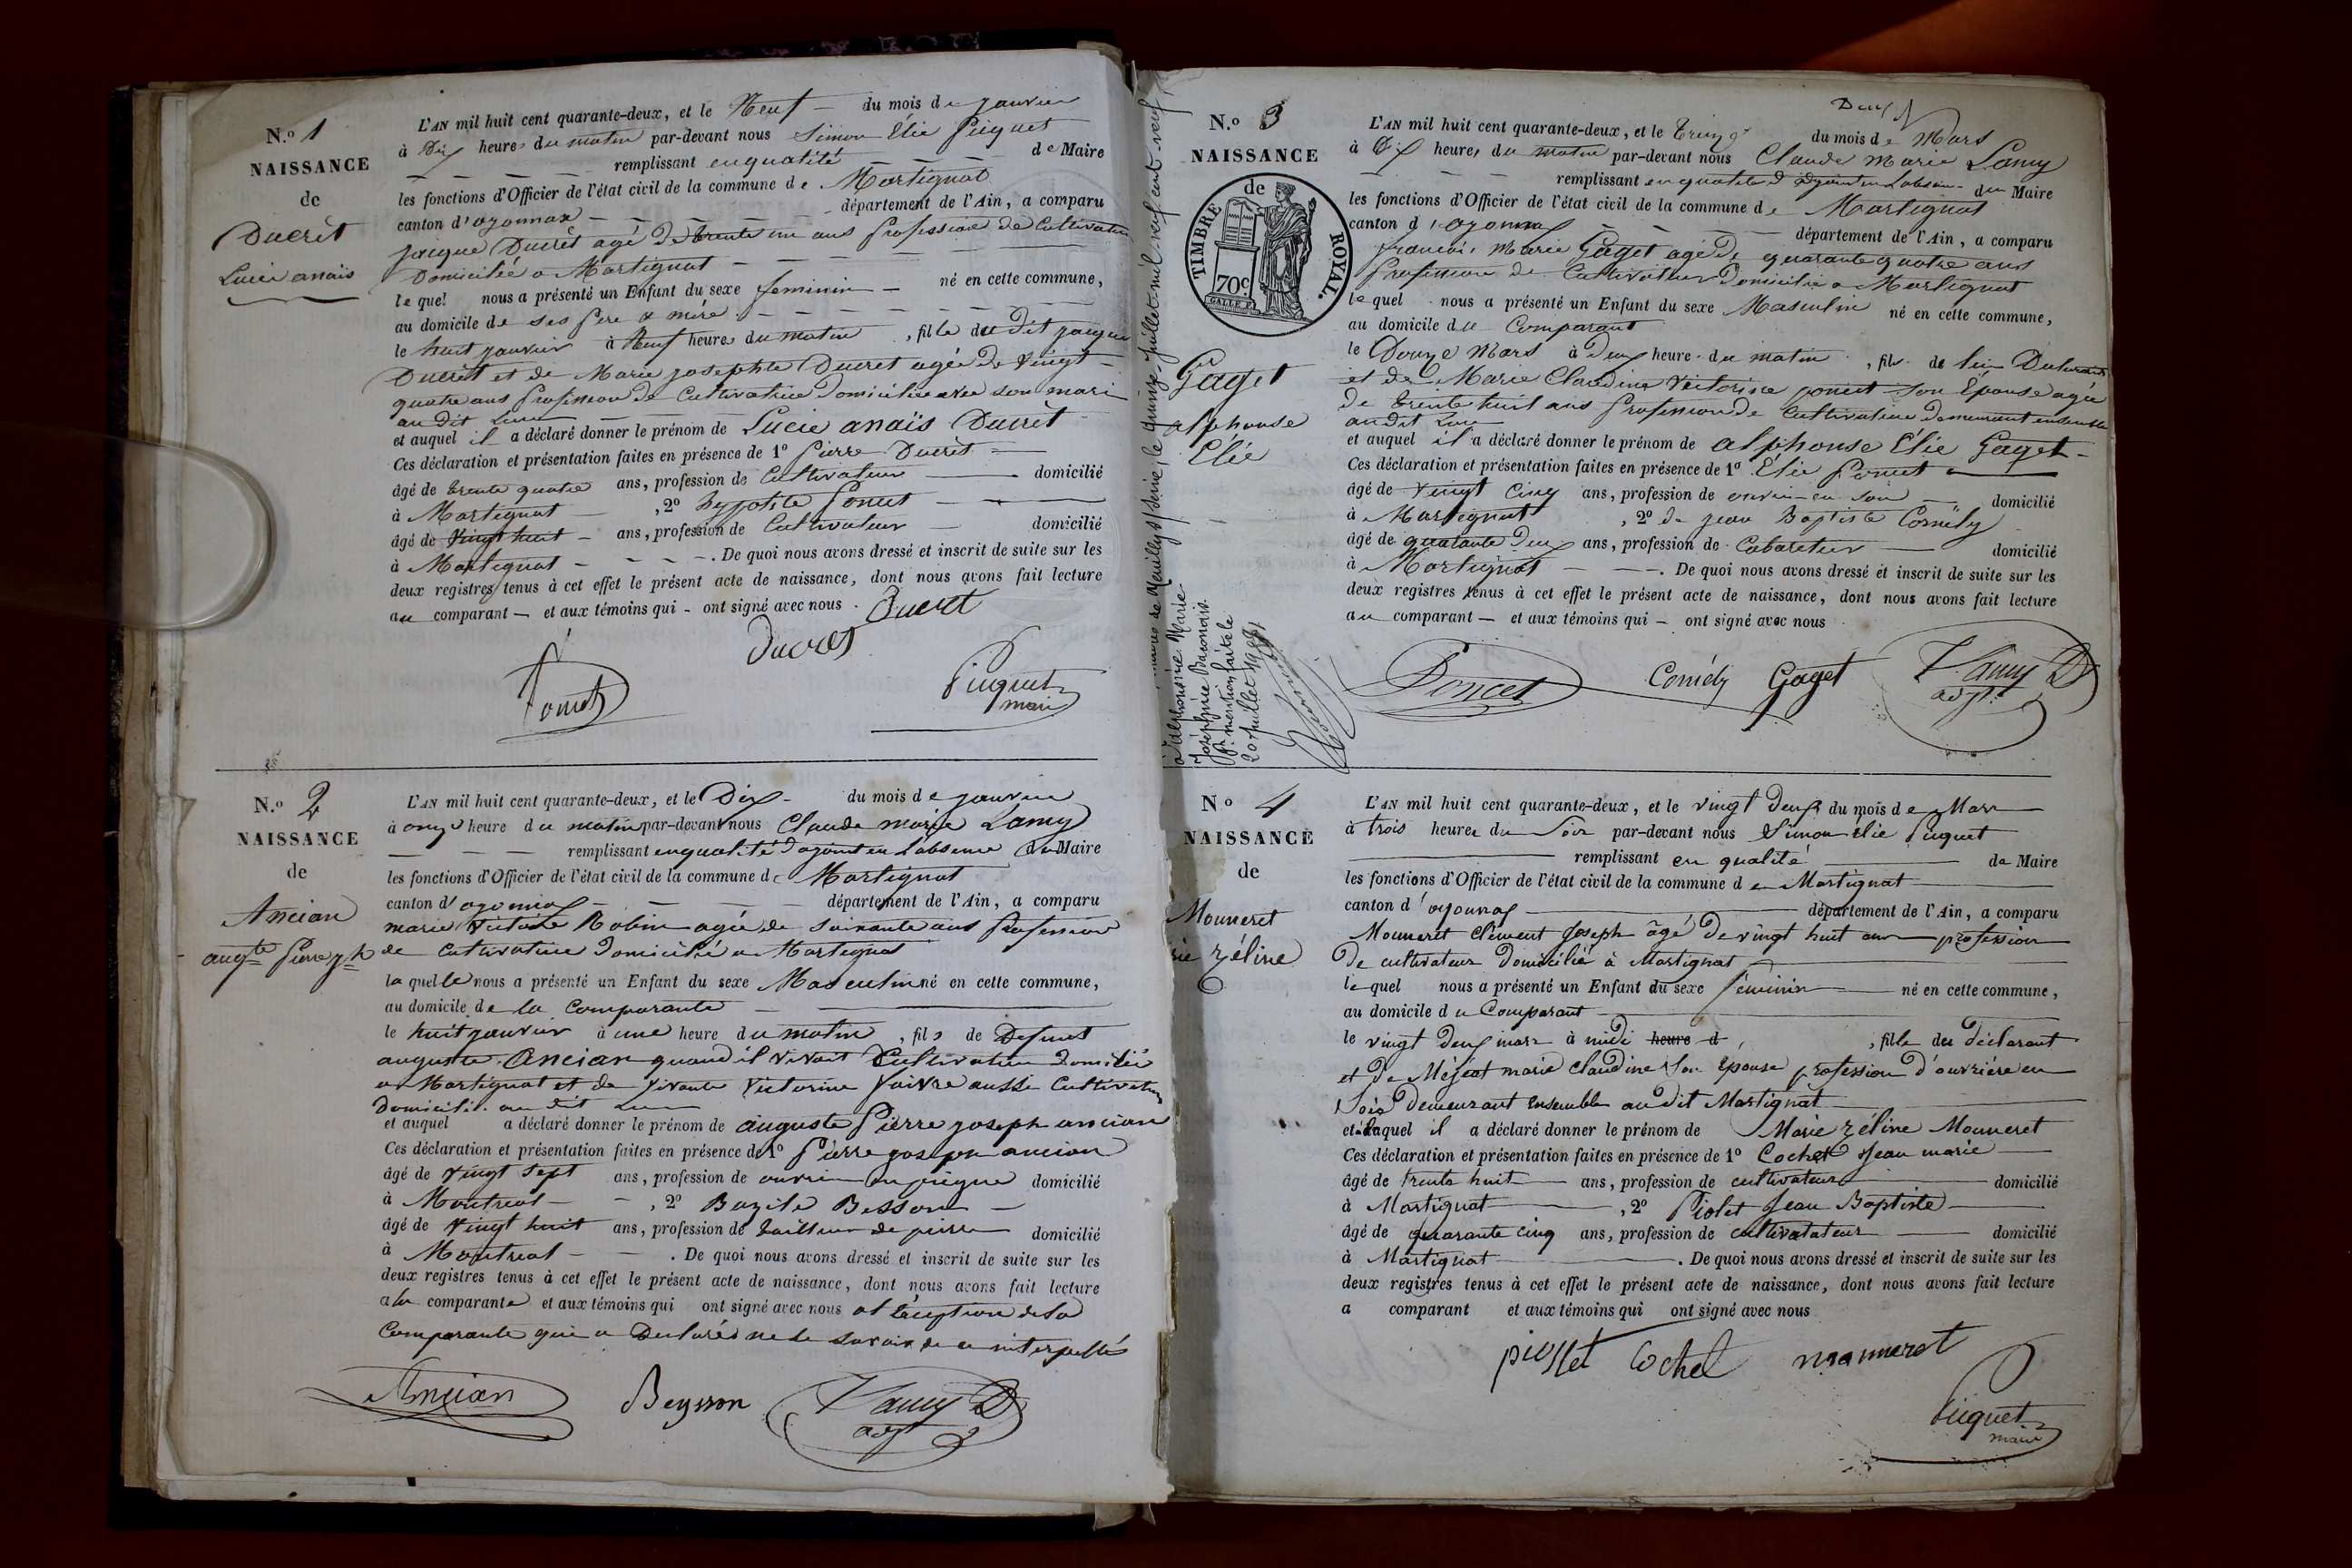 N.o 1
NAISSANCE
de
Ducrèt
Lucie anaïs
L'AN mil huit cent quarante-deux, et le Neuf du mois de janvier
à Dix heures du matin par-devant nous Simon Élie Piquet
remplissant en qualité de Maire
les fonctions d'Officier de l'état civil de la commune de Martignat
canton d'oyonnax département de l'Ain, a comparu
jacque Ducrèt agé de trente un ans profession de Cultivateur
Domicilié a Martignat
lequel nous a présenté un Enfant du sexe feminin né en cette commune,
au domicile de ses pere & mère
le huit janvier à Neuf heures du matin, fille du dit jacque
Ducrèt et de Marie josephte Ducret agée de vingt
quatre ans profession de Cultivatrice Domiciliée avec son mari
au dit lieu
et auquel il a déclaré donner le prénom de Lucie anaïs Ducrèt
Ces déclaration et présentation faites en présence de 1o Pierre Ducrèt
âgé de trente quatre ans, profession de Cultivateur domicilié
à Martignat, 2o hypolite Poncet
âgé de vingt huit ans, profession de Cultivateur domicilié
à Martignat. De quoi nous avons dressé et inscrit de suite sur les
deux registres tenus à cet effet le présent acte de naissance, dont nous avons fait lecture
au comparant et aux témoins qui ont signé avec nous. Ducret
Ducret
Poncet
Piquet
maire
N.o 2
NAISSANCE
de
Ancian
augte Pierre jph
L'AN mil huit cent quarante-deux, et le Dix du mois de janvier
à onze heure du matin par-devant nous Claude marie Lamy
remplissant en qualité d'ajoint en l'absence du Maire
les fonctions d'Officier de l'état civil de la commune de Martignat
canton d'oyonnax département de l'Ain, a comparu
marie Victoire Robin agée de soixante ans profession
de Cultivatrice Domiciliée a Martignat
laquelle nous a présenté un Enfant du sexe Masculin né en cette commune,
au domicile de la Comparante
le huit janvier à une heure du matin, fils de Defunt
auguste Ancian quand il vivait Cultivateur Domicilié
a Martignat et de vivante Victorine faivre aussi Cultivatrice
Domicilié au dit lieu
et auquel a déclaré donner le prénom de auguste Pierre joseph ancian
Ces déclaration et présentation faites en présence de 1o Pierre joseph ancian
âgé de vingt sept ans, profession de ouvrier en peigne domicilié
à Montreal, 2o Bazile Besson
âgé de vingt huit ans, profession de tailleur de pierre domicilié
à Montreal. De quoi nous avons dressé et inscrit de suite sur les
deux registres tenus à cet effet le présent acte de naissance, dont nous avons fait lecture
a la comparante et aux témoins qui ont signé avec nous at l'éxeption de la
Comparante qui a Declarée ne le savoir de ce interpellée
Ancian Beysson Lamy
adjt
N.o 3
NAISSANCE
de
TIMBRE ROYAL.
70c
Gaget
alphonse
Elie
Neuilly s/ Seine, le quinze juillet mil neuf cent neuf
à Alphonsine Marie
Joséphine
Pr mention faite le
20 juillet 1909
L'AN mil huit cent quarante-deux, et le treize du mois de Mars
à Dix heures du matin par-devant nous Claude Marie Lamy
remplissant en qualité d'adjoint en l'absence du Maire
les fonctions d'Officier de l'état civil de la commune de Martignat
canton d'oyonnax département de l'Ain, a comparu
françois Marie Gaget agé de quarante quatre ans
Profession de Cultivateur Domicilié a Martignat
lequel nous a présenté un Enfant du sexe Masculin né en cette commune,
au domicile du Comparant
le Douze Mars à Deux heure du matin, fils de lui Declarant
et de Marie Claudine Victorine poncet son Épouse agée
de trente huit ans Profession de Cultivatrice Demeurant ensemble
au dit Lieu
et auquel il a déclaré donner le prénom de alphonse Elie Gaget
Ces déclaration et présentation faites en présence de 1o Élie Poncet
âgé de vingt Cinq ans, profession de ouvrier en soie domicilié
à Martignat, 2o de jean Baptiste Comély
âgé de quarante Deux ans, profession de Cabaretier domicilié
à Martignat. De quoi nous avons dressé et inscrit de suite sur les
deux registres tenus à cet effet le présent acte de naissance, dont nous avons fait lecture
au comparant et aux témoins qui ont signé avec nous
Poncet Comély Gaget Lamy
adjt
No 4
NAISSANCE
de
Monneret
zéline
L'AN mil huit cent quarante-deux, et le vingt deux du mois de Mars
à trois heures du Soir par-devant nous Simon élie Piquet
remplissant en qualité de Maire
les fonctions d'Officier de l'état civil de la commune de Martignat
canton d'oyonnax département de l'Ain, a comparu
Monneret Clément Joseph âgé de vingt huit ans profession
De cultivateur Domicilié à Martignat
lequel nous a présenté un Enfant du sexe féminin né en cette commune,
au domicile du Comparant
le vingt Deux mars à midi heure d, fille du déclarant
et de Méjeat marie Claudine Son Epouse profession d'ouvrière en
Soie Demeurant Ensemble au dit Martignat
et laquel il a déclaré donner le prénom de Marie zéline Monneret
Ces déclaration et présentation faites en présence de 1o Cochet Jean marie
âgé de trente huit ans, profession de cultivateur domicilié
à Martignat, 2o Piolet Jean Baptiste
âgé de quarante cinq ans, profession de cultivatateur domicilié
à Martignat. De quoi nous avons dressé et inscrit de suite sur les
deux registres tenus à cet effet le présent acte de naissance, dont nous avons fait lecture
a comparant et aux témoins qui ont signé avec nous
piollet Cochet monneret
Piquet
maire